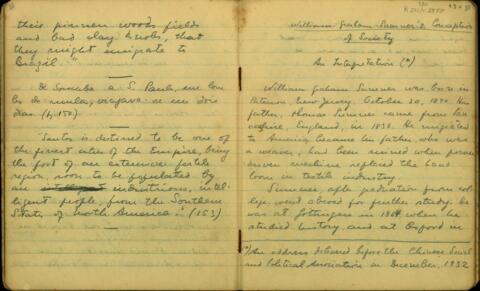 their pinnen woods fields
and bad clay knobs, that
they might emigrate to
Brazil."
De Sorocaba a S. Paulo, em lom
bo de mula, viajava-se em dois
dias (p. 150)
"Santos is destined to be one of
the finest cities of the Empire, being
the port of an extensive fertile
region, soon to be populated by
an industrious, intel-
ligent people, from the Southern
States of North America." (153)
William Graham Sumner's Conception
of Society
An Interpretation (*)
William Graham Sumner was born in
Paterson, New Jersey, October 30, 1840. His
father, Thomas Sumner came from Lan
cashire, England, in 1836. He emigrated
to America because his father, who was
a weaver, had been ruined when power
driven machine replaced the hand
loom in textile industry.
Sumner, after graduation from col-
lege, went abroad for further study. he
was at Göttingen in 1864, when he
studied history, and at Oxford in
(*) An address delivered before the Chinese Social
and Political Association in December, 1932